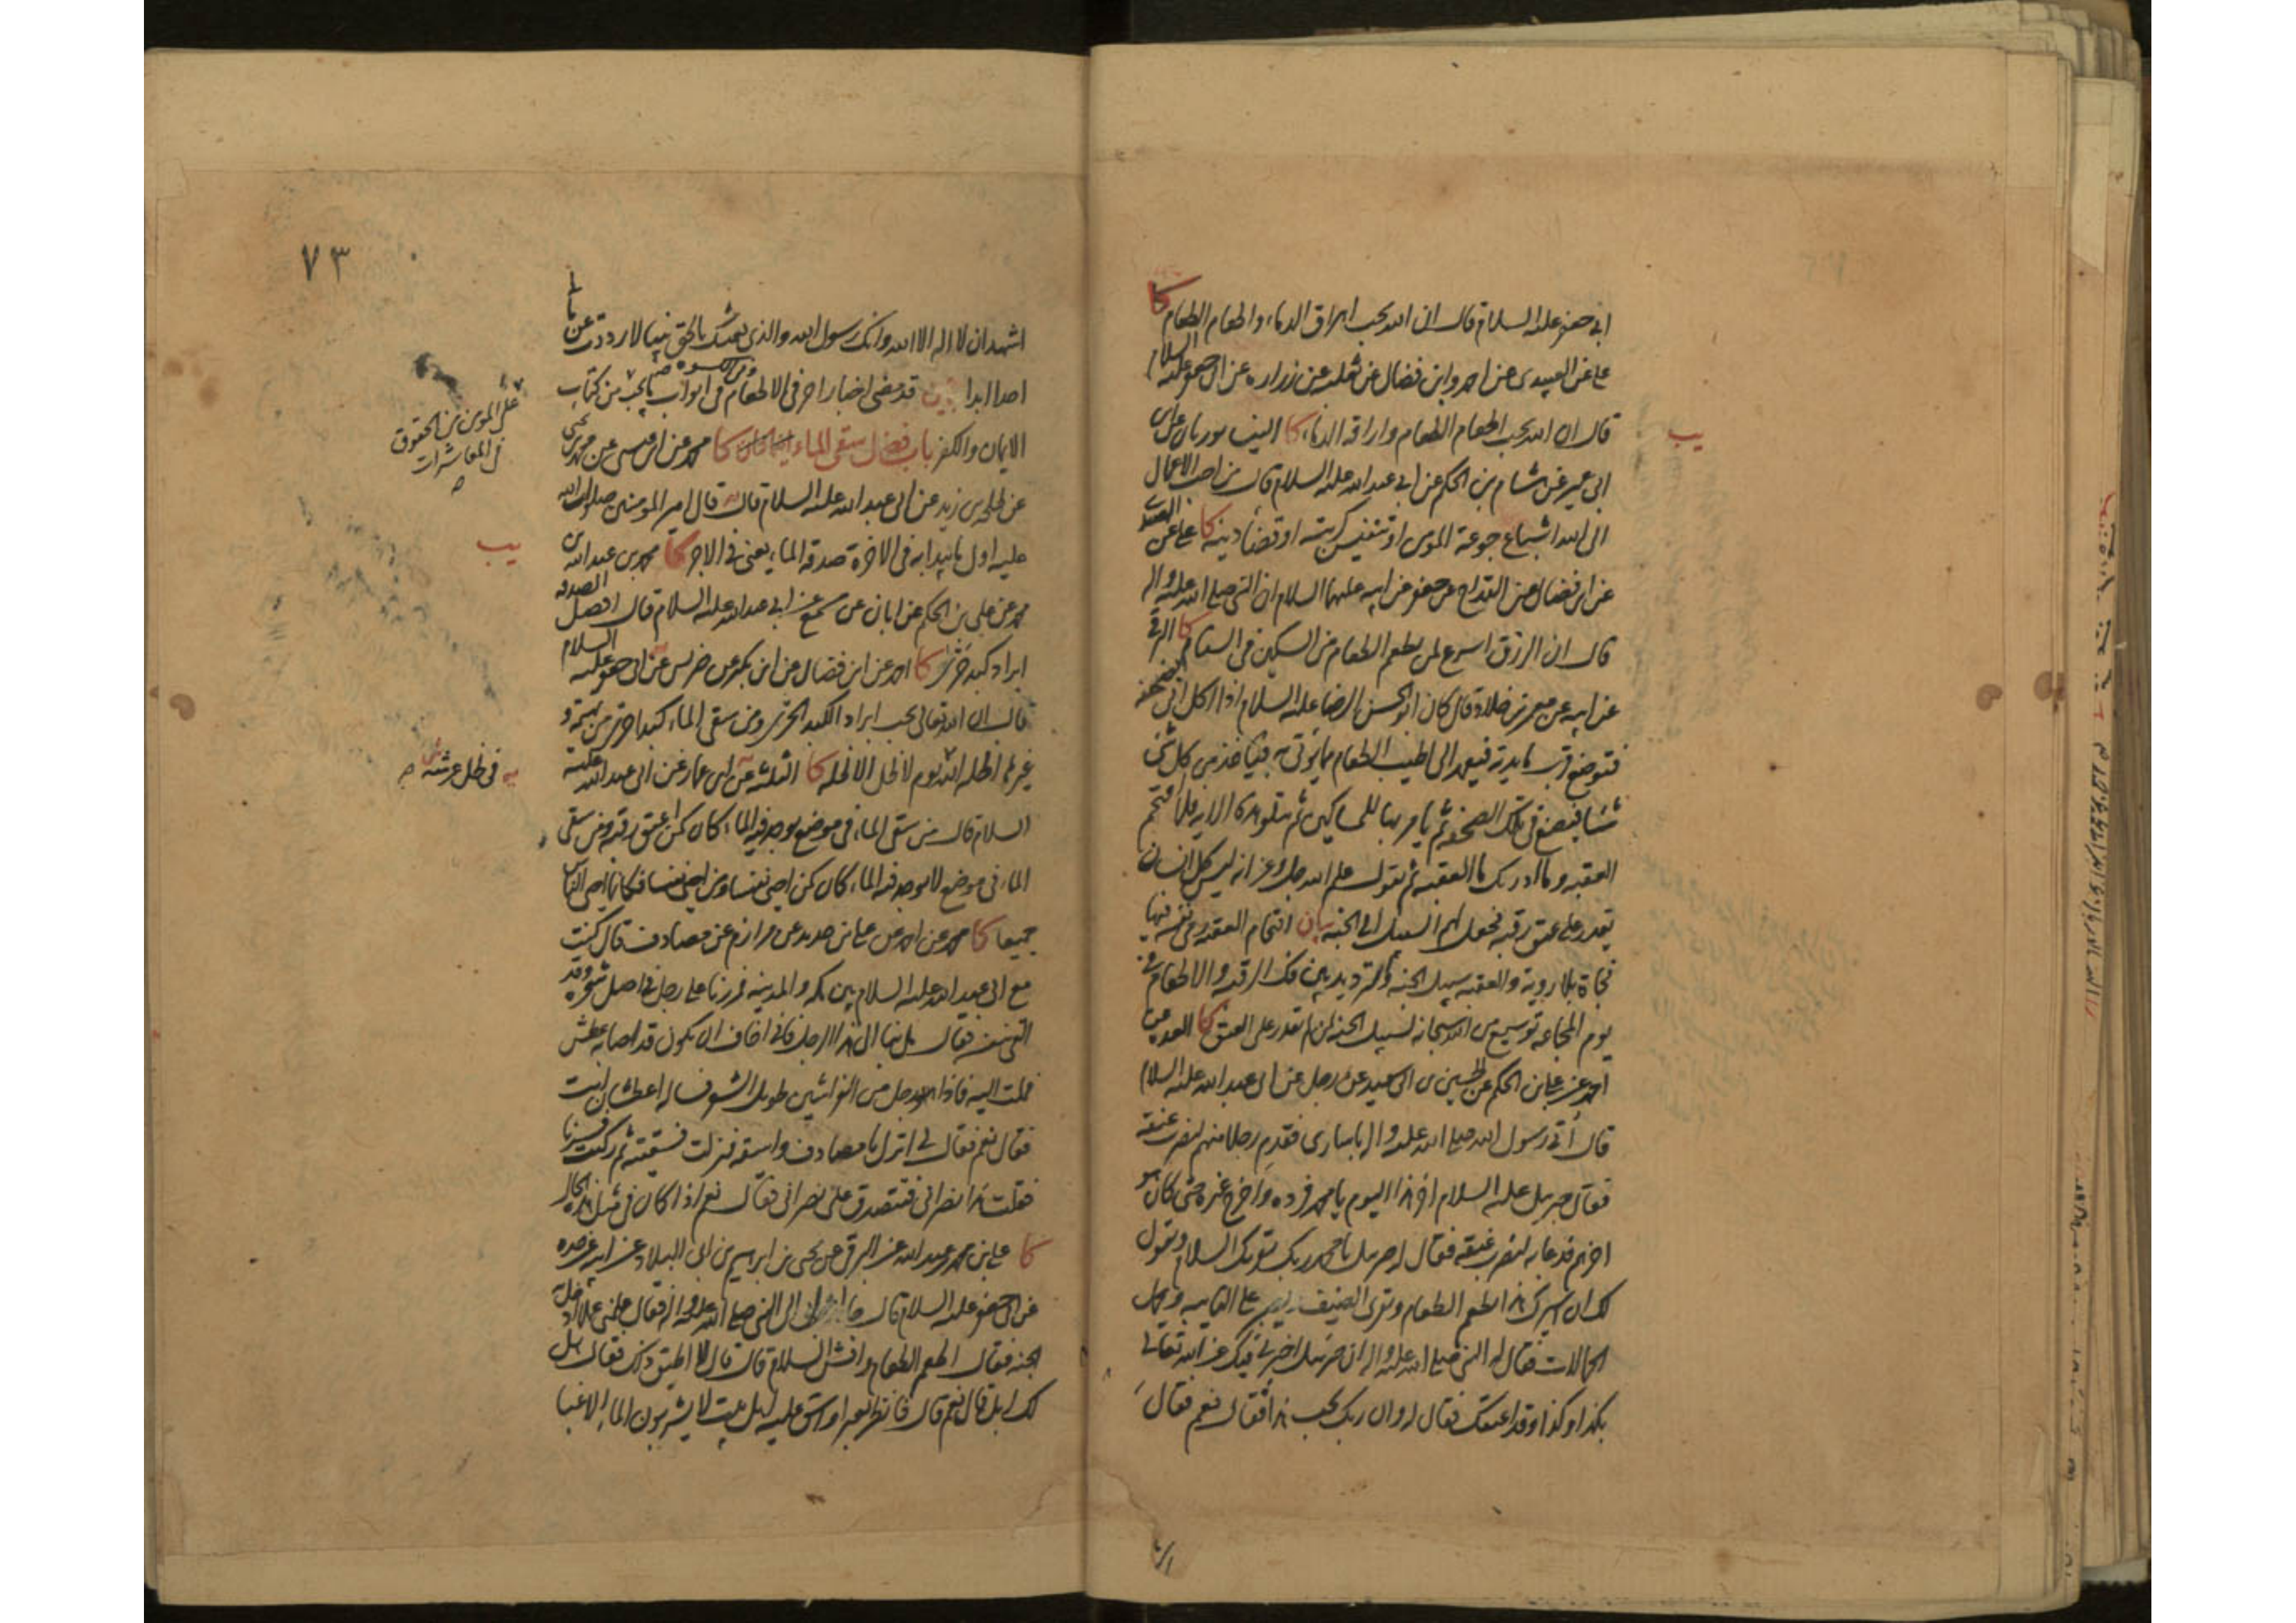 كا
ابي جعفر عليه السلام قال ان الله يحب اهراق الدماء واطعام الطعام
علي عن العبيدي عن احمد وابن فضال عن ثعلبه عن زراره عن ابي جعفر عليه السلام
قال ان الله يحب اطعام الطعام واراقه الدماء كا
يب
ابي عمير عن هشام بن الحكم عن ابي عبد الله عليه السلام قال من احب الاعمال
الى الله اشباع جوعة المومن او تنفيس كربته او قضاء دينه كا علي عن العبيدي
عن ابن فضال عن القداح عن جعفر عن ابيه عليهما السلام ان النبي صلى الله عليه واله
قال ان الرزق اسرع لمن يطعم الطعام من السكين في السنام كا البرقي
عن ابيه عن معمر بن خلاد قال كان ابو الحسن الرضا عليه السلام اذا اكل اتى بصحفة
فتوضع قرب مايدته فيعمد الى اطيب الطعام مما يوتى به فياخذ من كل شي
شيئا فيضع في تلك الصحفه ثم يامر بها للمساكين ثم يتلو هذه الايه فلا اقتحم
العقبه وما ادريك ما العقبه ثم يقول علم الله جل وعز انه ليس كل انسان
يقدر على عتق رقبه فجعل لهم السبيل الى الجنه بيان اقتحام العقبه رمى نفسه فيها
فجاة بلا روية والعقبه سبيل الجنه والترديد بين فك الرقبه والاطعام في
يوم المجاعه توسيع من الله سبحانه لسبيل الجنه لمن لم يقدر على العتق كا العده عن
احمد عن علي بن الحكم عن الحسين بن ابي سعيد عن رجل عن ابي عبد الله عليه السلام
قال أتى رسول الله صلى الله عليه واله باسارى فقدم رجلا منهم ليضرب عنقه
فقال جبريل عليه السلام اخر هذا اليوم يا محمد فرده واخرج غيره حتى كان هو
اخرهم فدعا به ليضرب عنقه فقال له جبريل يا محمد ربك يقريك السلام ويقول
لك ان اسيرك هذا يطعم الطعام ويقرى الضيف ويصبر على النايبه ويحمل
الحمالات فقال له النبي صلى الله عليه واله ان جبريل اخبرني فيك عن الله تعالى
بكذا وكذا وقد اعتقتك فقال له وان ربك يحب هذا فقال نعم فقال
٧٣
اشهد ان لا اله الا الله وانك رسول الله والذي بعثك بالحق نبيا لا رددت عن مالي
احدا ابدا بيان قد مضى اخبار اخر في الاطعام في ابواب ما يجب من كتاب
على المومن من الحقوق
في المعاشرات
الايمان والكفر باب فضل سقي الماء كا محمد عن ابن عيسى عن محمد بن يحيى
عن طلحه بن زيد عن ابي عبد الله عليه السلام قال قال امير المومنين صلوات الله
عليه اول ما يبدا به في الاخرة صدقه الماء يعني في الاجر كا محمد بن عبد الله بن
يب
محمد عن علي بن الحكم عن ابان عن مسمع عن ابي عبد الله عليه السلام قال افضل الصدقه
ابراد كبد حرى كا احمد عن ابن فضال عن ابن بكير عن ضريس عن ابي جعفر عليه السلام
قال ان الله تعالى يحب ابراد الكبد الحرى ومن سقى الماء كبدا حرى من بهيمة و
غيرها اظله الله يوم لا ظل الا ظله كا الثلثه عن ابن عمار عن ابي عبد الله عليه
يه في ظل عرشه
السلام قال من سقى الماء في موضع يوجد فيه الماء كان كمن اعتق رقبه ومن سقى
الماء في موضع لا يوجد فيه الماء كان كمن احيى نفسا ومن احيى نفسا فكانما احيى الناس
جميعا كا محمد عن احمد عن علي بن حديد عن مرازم عن مصادف قال كنت
مع ابي عبد الله عليه السلام بين مكه والمدينه فمررنا على رجل في اصل شجره وقد
القى بنفسه فقال مل بنا الى هذا الرجل فاني اخاف ان يكون قد اصابه عطش
فملت اليه فاذا رجل من الفراشين طويل الشعر فساله اعطشان انت
فقال نعم فقال لي انزل يا مصادف واسقه فنزلت فسقيته ثم ركبت وسرنا
فقلت هذا نصراني فتتصدق على نصراني فقال نعم اذا كان في مثل هذا الحال
كا علي بن محمد بن عبد الله عن البرقي عن يحيى بن ابراهيم بن ابي البلاد عن ابيه عن جده
عن ابي جعفر عليه السلام قال جاء اعرابي الى النبي صلى الله عليه واله فقال علمني عملا ادخل به
الجنه فقال اطعم الطعام وافش السلام قال قال لا اطيق ذلك فقال هل
لك ابل قال نعم قال فانظر بعيرا واسق عليه اهل بيت لا يشربون الماء الا غبا